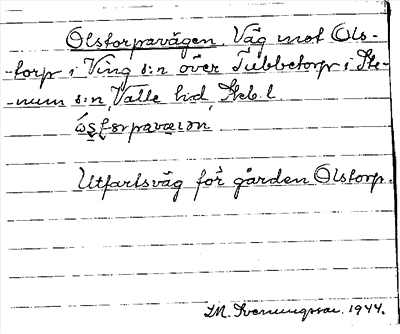 Olstorpavägen. Väg mot Ols-
-torp i Ving s:n över Tubbetorp i Ste-
-num s:n, Valle hd, Skb. l.
Utfartsväg för gården Olstorp.
M. Svenungsson. 1944.